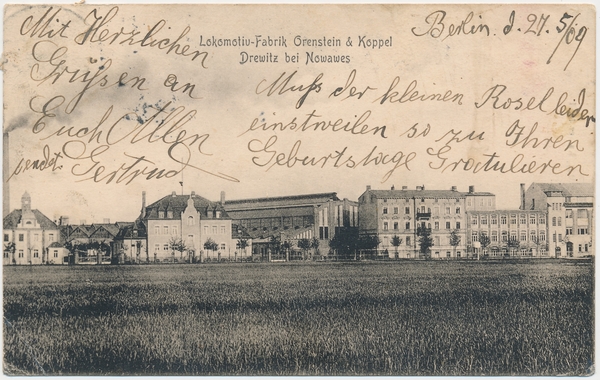 Lokomotiv-Fabrik Orenstein & Koppel
Drewitz bei Nowawes
Berlin. d. 27. 5/09
Mit Herzlichen
Grüßen an
Euch Allen
sendet Gertrud
Muß der kleinen Rosel leider
einstweilen so zu Ihren
Geburtstage Gratulieren